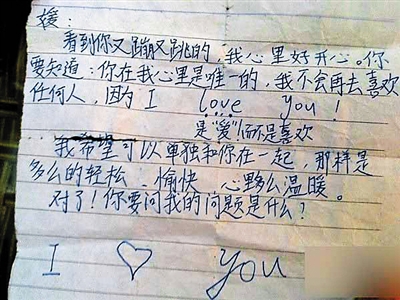 媛：
看到你又蹦又跳的，我心里好开心。你
要知道：你在我心里是唯一的，我不会再去喜欢
任何人，因为 I love you！
是“爱”而不是喜欢
我希望可以单独和你在一起，那样是
多么的轻松、愉快，心多么温暖。
对了！你要问我的问题是什么？
I ♡ you